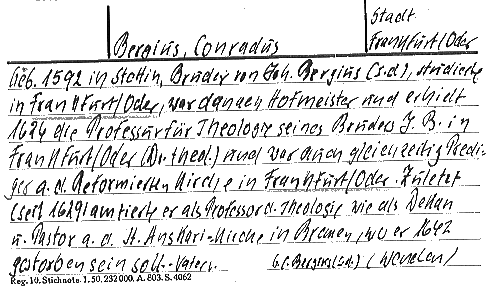 Stadt
Bergius, Conradus Frankfurt/Oder
Geb. 1592 in Stettin, Bruder von Joh. Bergius (s.d.), studierte
in Frankfurt/Oder, war dann Hofmeister und erhielt
1624 die Professur für Theologie seines Bruders J. B. in
Frankfurt/Oder (Dr. theol.) und war auch gleichzeitig Predi-
ger a. d. Reformierten Kirche in Frankfurt/Oder. Zuletzt
(seit 1629) amtierte er als Professor d. Theologie wie als Dekan
u. Pastor a. d. St. Anskari-Kirche in Bremen, wo er 1642
gestorben sein soll. - Vater v. G. C. Bergius (s.d.) (Wendland)
Reg. 10. Stichnote. 1. 50. 232000. A. 803. S. 4062